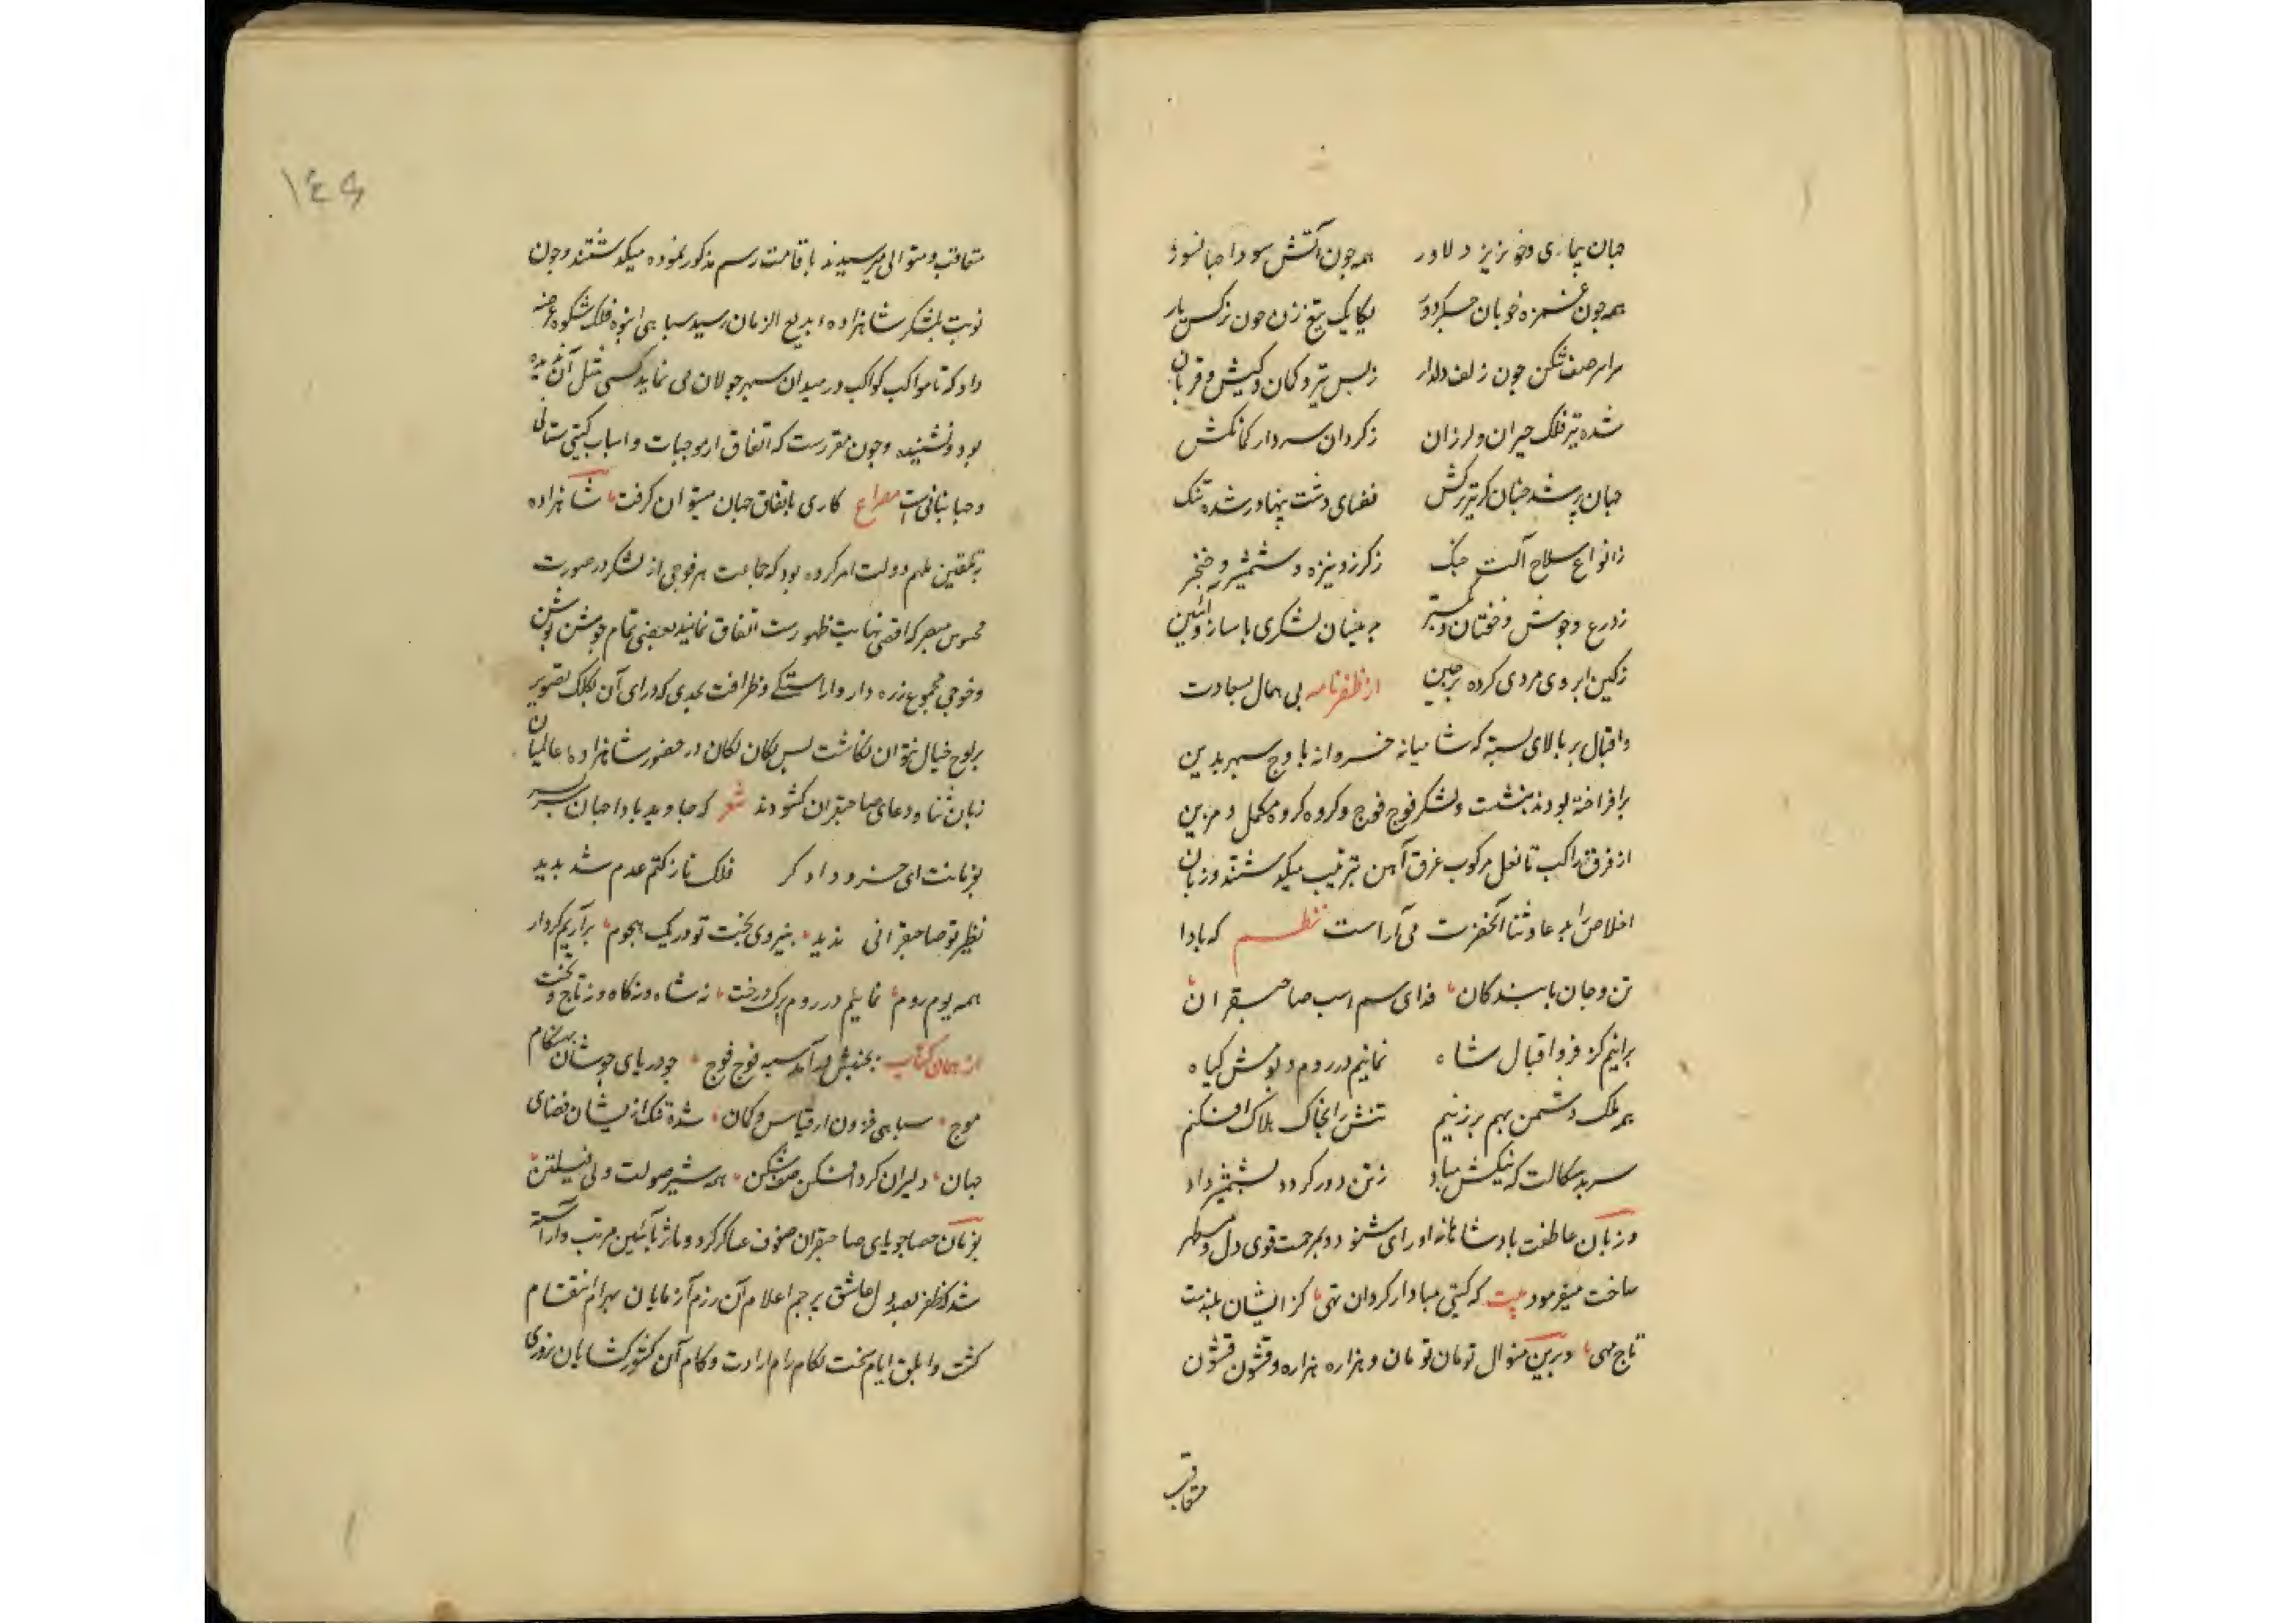 جهان پیمای و خونریز و دلاور همه چون آتش سودا جهانسوز
همه چون غمزه خوبان جگردوز یکایک تیغ زن چون نرکس یار
سراسر صف شکن چون زلف دلدار زبس تیر و کمان و کیش و قربان
شده تیر فلک حیران و لرزان زکردان سردار کمانکش
جهان پر شد چنان کز تیر ترکش فضای دشت پهناور شده تنک
زانواع سلاح آلت جنک زکرز و نیزه و شمشیر و خنجر
زدرع و جوشن و خفتان و مغفر چنان لشکری با ساز و آئین
زکین ابروی مردی کرده پرچین از ظفرنامه بی همال بسعادت
و اقبال بر بالای پشته که شامیانه خسروانه باوج سپهر بدین
برافراخته بودند بنشست و لشکر فوج فوج و کروه کروه مکمل و مزین
از فرق راکب تا نعل مرکوب غرق آهن بترتیب میکذشتند و زبان
اخلاص را بدعا و ثنا آنحضرت می آراست نظم که بادا
تن و جان ما بندکان فدای سم اسب صاحبقران
برانیم کز فر و اقبال شاه نمانیم در روم و بومش کیاه
همه ملک دشمن بهم برزنیم تنش را بخاک هلاک افکنیم
سر بدسکالت که نیکش مباد زتن دور کردد بشمشیر داد
و زبان عاطفت بادشاهانه او رای شنود و بمرحمت قوی دل و مستظهر
ساخت میفرمود بیت که کیتی مبادا ز کردان تهی کز ایشان بلندست
تاج مهی و برین منوال تومان تومان و هزاره هزاره و قشون قشون
متعاقب
١٤٩
متعاقب و متوالی میرسیدند با قامت رسم مذکور نموده میکذشتند و چون
نوبت بلشکر شاهزاده بدیع الزمان رسید سپاهی انبوه فلک شکوه عرضه
داد که تا مواکب کواکب در میدان سپهر جولان می نماید کسی مثل آن ندیده
بود و نشنیده و چون مقررست که اتفاق از موجبات و اسباب کیتی ستانی
و جهانبانی است مصراع کاری باتفاق جهان میتوان کرفت شاهزاده
بتلقین ملهم دولت امر کرده بود که جماعت هر فوجی از لشکر در صورت
محسوس مبصر که اقصی نهایت ظهورست اتفاق نمایند بعضی تمام جوشن پوش
و فوجی مجموع زره دار و اراستکی و ظرافت بحدی که ورای آن بکلک تصویر
بر لوح خیال نتوان نکاشت پس یکان یکان در حضور شاهزاده عالمیان
زبان ثنا و دعای صاحبقران کشودند شعر که جاوید بادا جهان سربسر
بفرمانت ای خسرو دادکر فلک تا ز کتم عدم شد بدید
نظیر تو صاحبقرانی ندید بنیروی بخت تو در یک هجوم برآریم کردار
همه بوم روم نمانیم در روم برک درخت نه شاه و نه کاه و نه تاج و تخت
از همان کتاب بجنبش درآمد سپه فوج فوج چو دریای جوشان بهنکام
موج سپاهی فزون از قیاس و کمان شده تنک ازیشان فضای
جهان دلیران کردافکن صف شکن همه شیر صولت ولی پیلتن
بفرمان حصاجویای صاحبقران صفوف عساکر کردون مآثر بآئین مرتب و آراسته
شد که ظفر بصد دل عاشق پرچم اعلام آن رزم آزمایان بهرام انتقام
کشت و ابلق ایام سخت لکام رام ارادت و کام آن کشورکشایان روزی